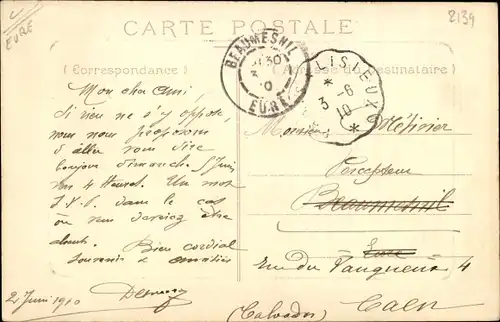 EURE
2139
CARTE POSTALE
(Correspondance)
(Adresse du Destinataire)
BEAUMESNIL
EURE
LISIEUX
3 - 6
10
Mon cher Ami,
Si rien ne s'y oppose,
nous nous proposons
d'aller vous dire
bonjour dimanche 5 Juin
vers 4 heures. Un mot
S.V.P. dans le cas
où vous seriez
absents. Bien cordial
Souvenir &
2 Juin 1910
Monsieur Métivier
Percepteur
Beaumesnil
Eure
rue du Vaugueux 4
Caen
(Calvados)